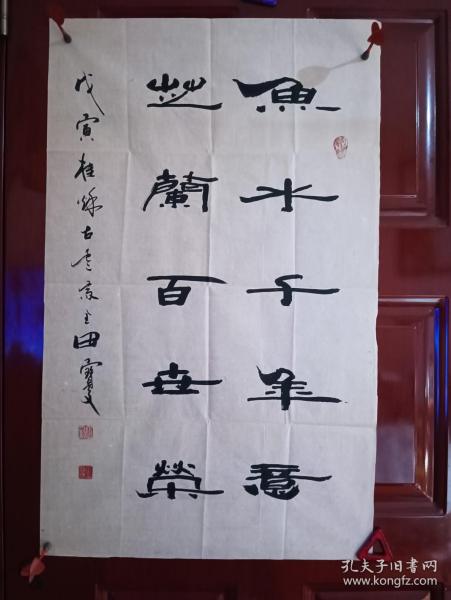 魚水千年意
芝蘭百世榮
戊寅桂秋古宅齋主田實
孔夫子旧书网
www.kongfz.com